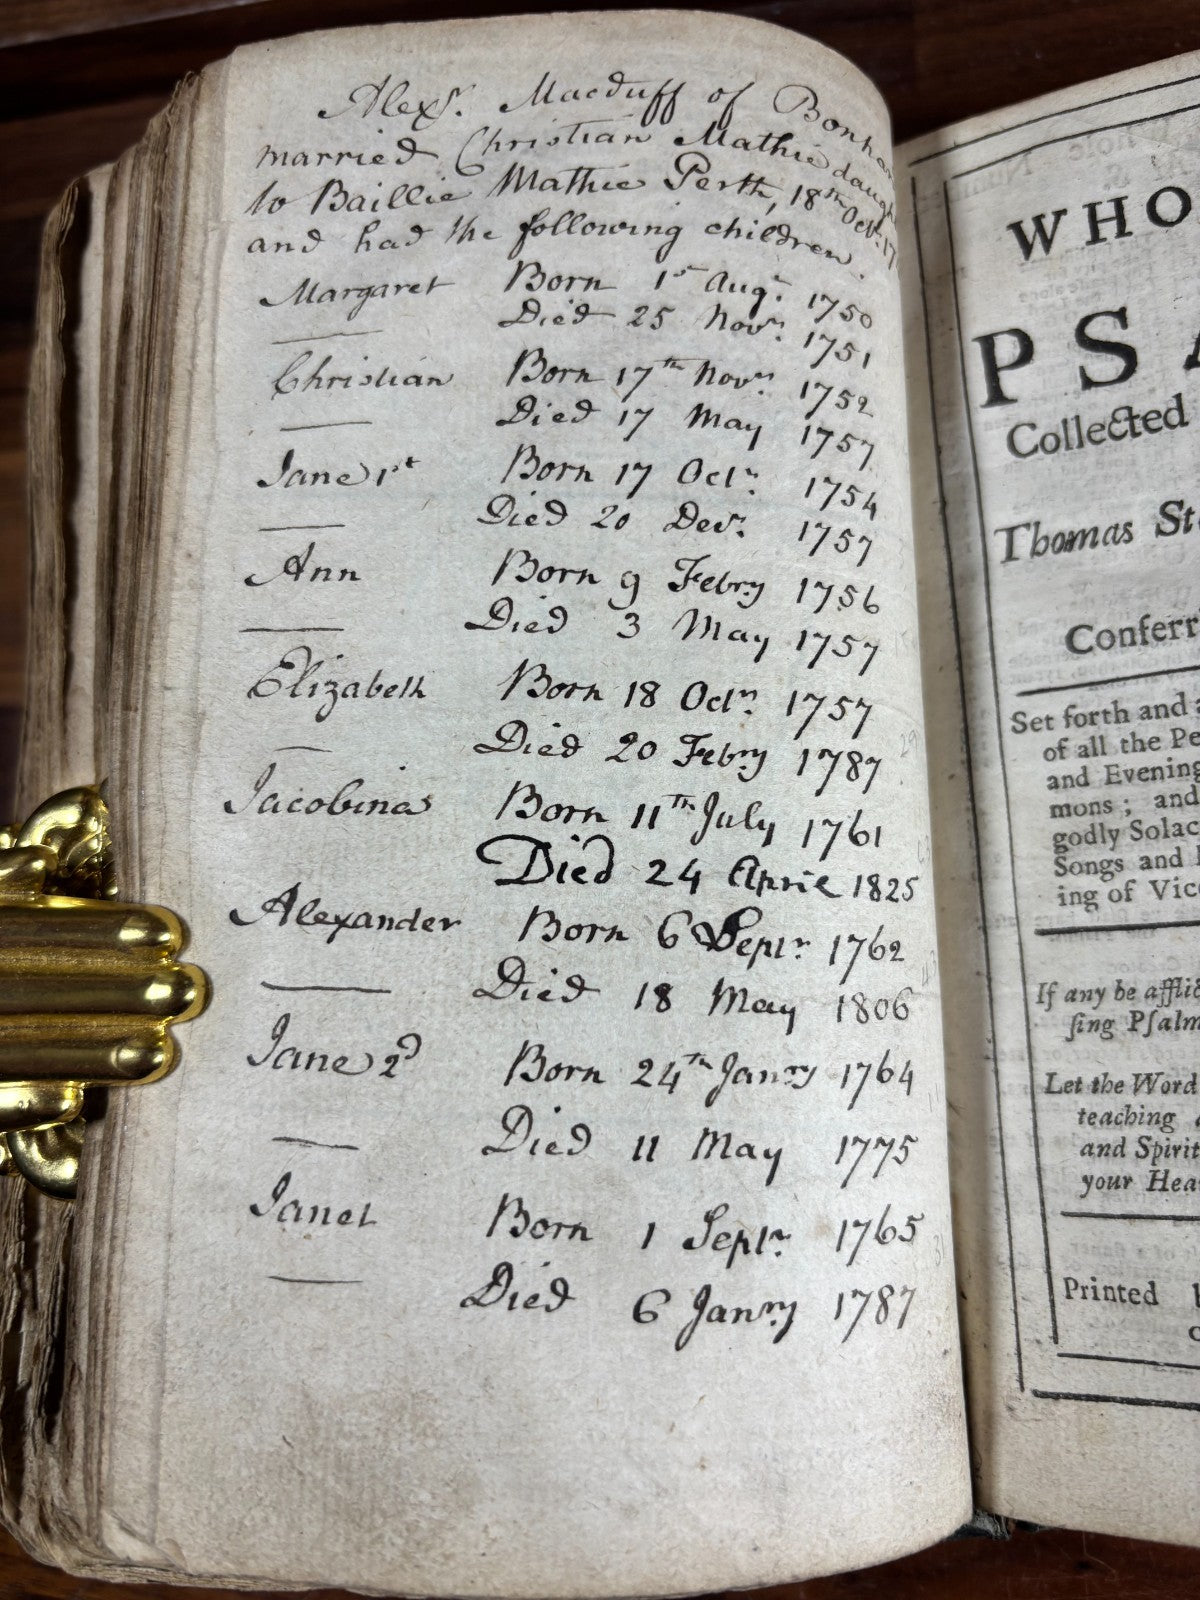 Alexr. Macduff of Bonha
married Christian Mathie daugh
to Baillie Mathie Perth, 18th Octr. 17
and had the following children.
Margaret Born 1st Augt. 1750
Died 25 Novr. 1751
Christian Born 17th Novr. 1752
Died 17 May 1757
Jane 1st Born 17 Octr. 1754
Died 20 Decr. 1757
Ann Born 9 Febry 1756
Died 3 May 1757
Elizabeth Born 18 Octr. 1757
Died 20 Febry 1787
Jacobina Born 11Th July 1761
Died 24 April 1825
Alexander Born 6 Septr. 1762
Died 18 May 1806
Jane 2d Born 24Th Janry 1764
Died 11 May 1775
Janet Born 1 Septr. 1765
Died 6 Janry 1787
WHO
PSA
Collected
Thomas St
Conferr
Set forth and a
of all the Pe
and Evening
mons; and
godly Solac
Songs and
ing of Vic
If any be afflic
sing Psalm
Let the Word
teaching a
and Spirit
your Hea
Printed